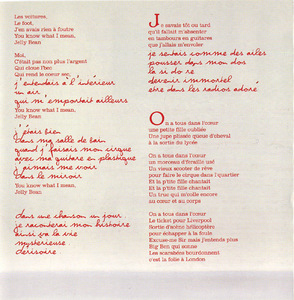 Les voitures,
Le foot,
J'en avais rien à foutre
You know what I mean,
Jelly Bean
Moi,
C'était pas non plus l'argent
Qui cloue l'bec
Qui rend le coeur sec,
j'entendais à l'intérieur
un air
qui m'emportait ailleurs
You know what I mean,
Jelly Bean
j'étais bien
dans ma salle de bain
quand j'faisais mon cirque
avec ma guitare en plastique
j'aimais me voir
dans le miroir
You know what I mean,
Jelly Bean
dans une chanson un jour
je raconterai mon histoire
ainsi va la vie
mystérieuse
dérisoire
Je savais tôt ou tard
qu'il fallait m'absenter
en tambours en guitares
que j'allais m'envoler
je sentais comme des ailes
pousser dans mon dos
la si do ré
devenir immortel
être dans les radios adoré
On a tous dans l'coeur
une petite fille oubliée
Une jupe plissée queue d'cheval
à la sortie du lycée
On a tous dans l'coeur
un morceau d'ferraille usé
Un vieux scooter de rêve
pour faire le cirque dans l'quartier
Et la p'tite fille chantait
Et la p'tite fille chantait
Un truc qui m'colle encore
au coeur et au corps
On a tous dans l'coeur
Le ticket pour Liverpool
Sortie d'scène hélicoptère
pour échapper à la foule
Excuse-me Sir mais j'entends plus
Big Ben qui sonne
Les scarabées bourdonnent
c'est la folie à London